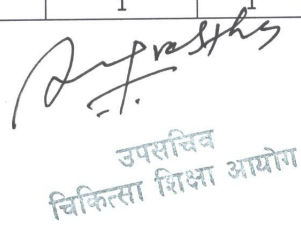 1 1
उपसचिव
चिकित्सा शिक्षा आयोग